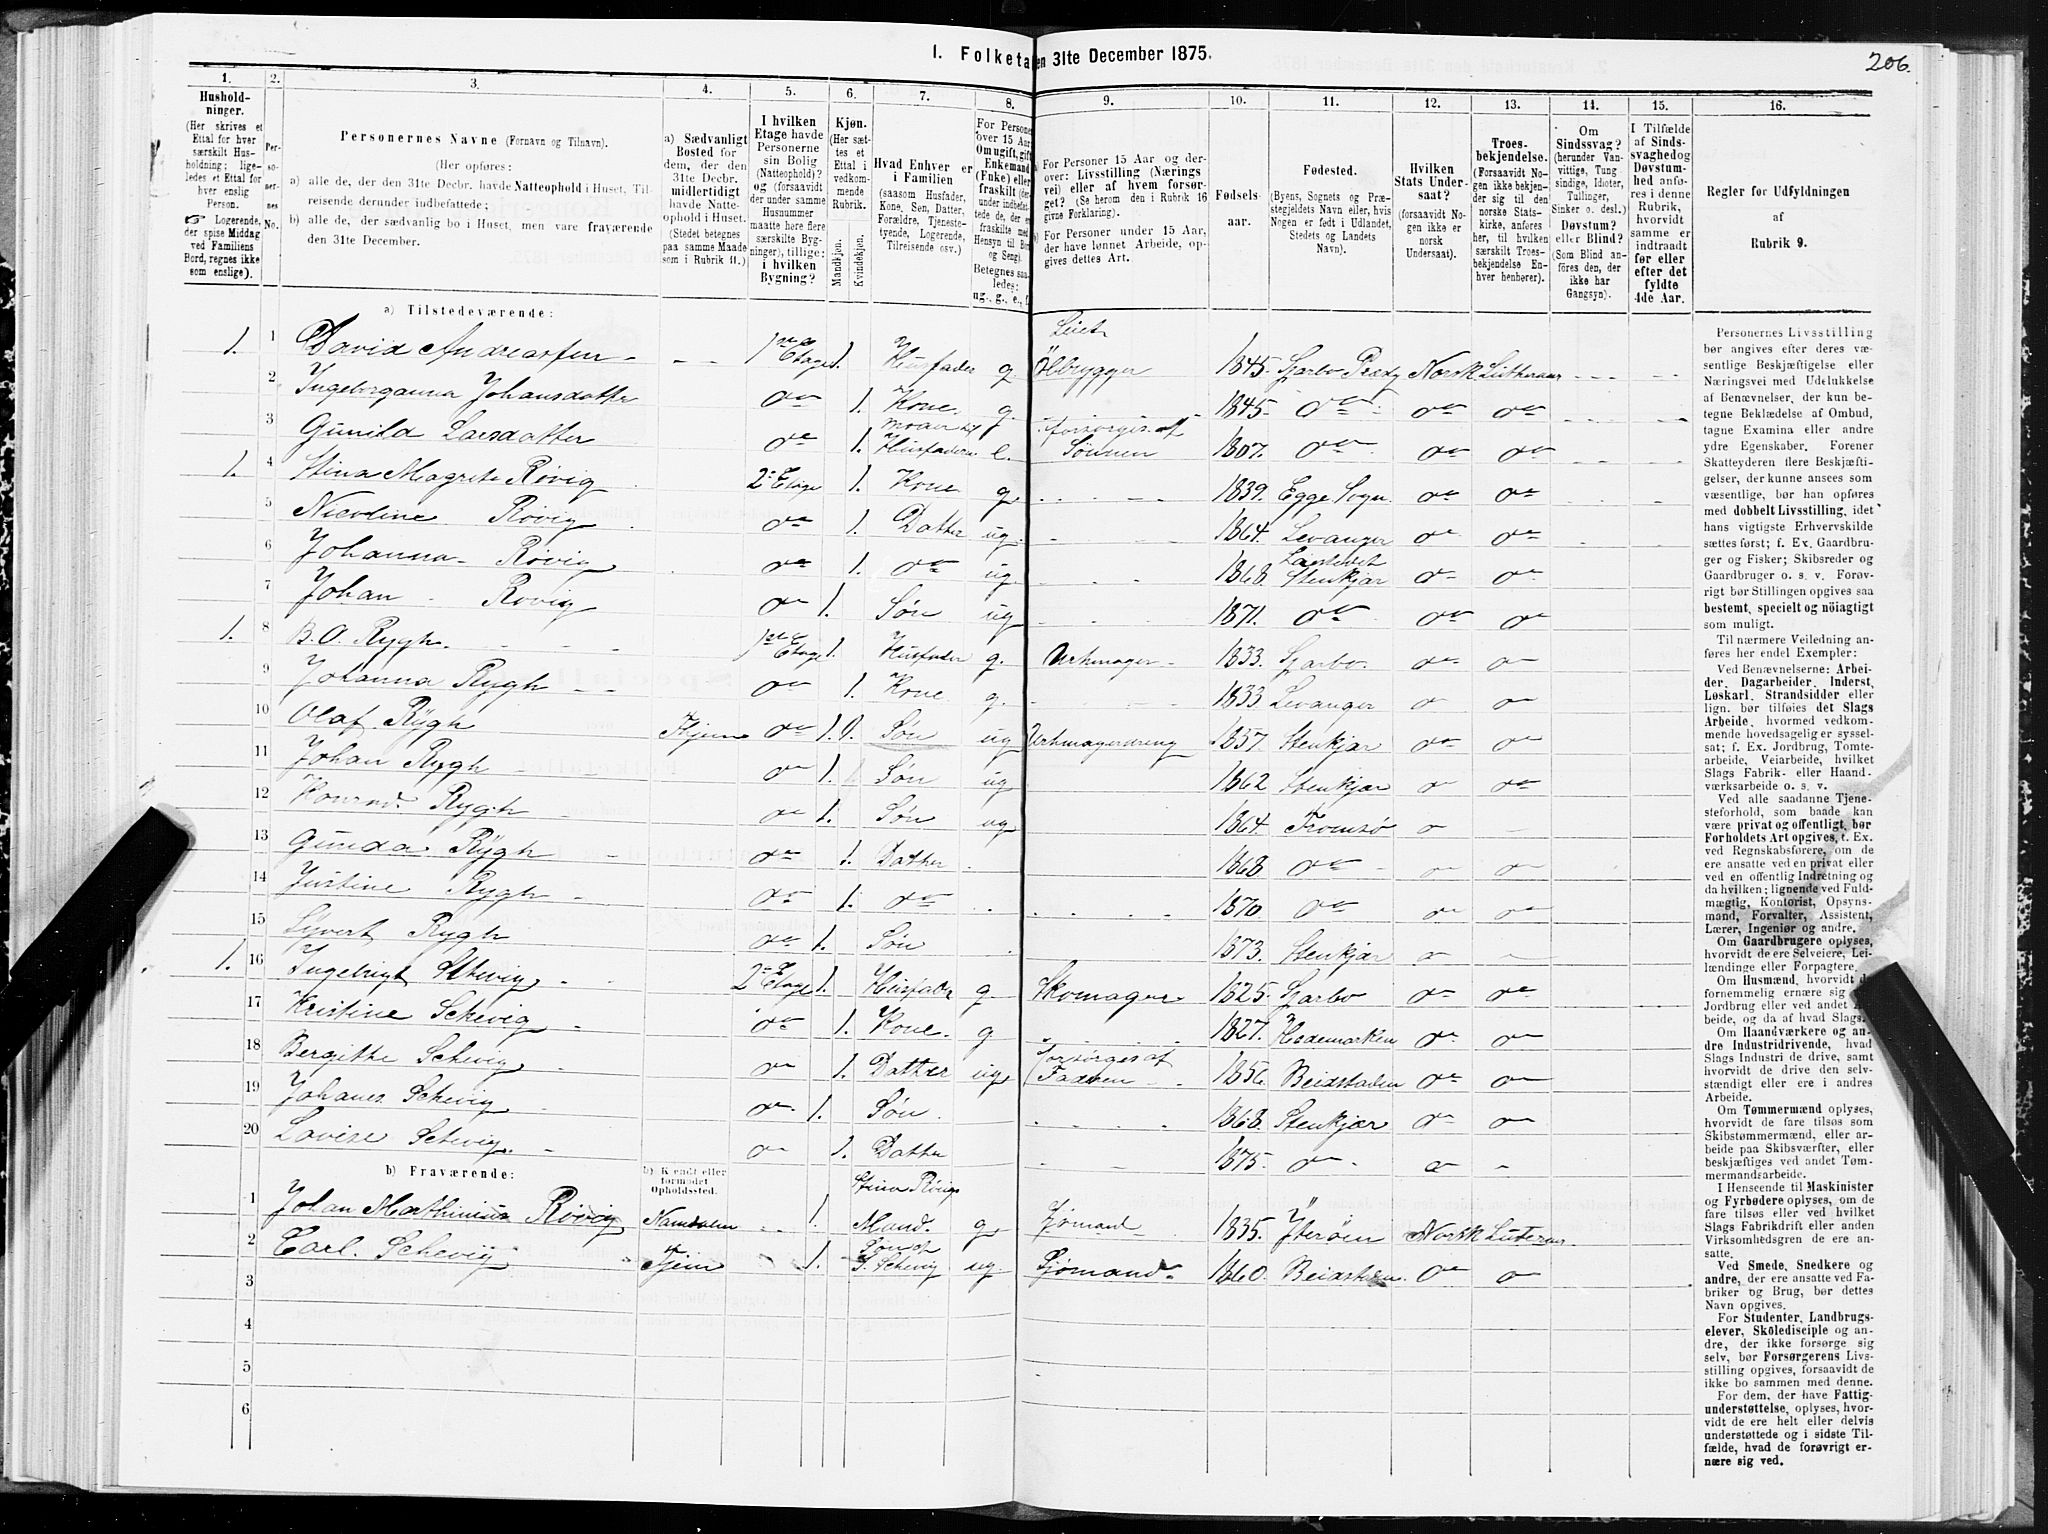 1. Folketa en 31te December 1875.
206.
1.
2.
3.
4.
5.
6.
7.
8.
9.
10.
11.
12.
13.
14.
15.
16.
Hushold-
ninger.
(Her skrives et
Ettal for hver
særskilt Hus-
holdning; lige-
ledes et Ettal for
hver enslig
Person.
☞ Logerende,
der spise Middag
ved Familiens
Bord, regnes ikke
som enslige).
Per-
so-
ner-
nes
No.
Personernes Navne (Fornavn og Tilnavn).
(Her opføres:
a) alle de, der den 31te Decbr. havde Natteophold i Huset, Til-
reisende derunder indbefattede;
b) alle de, der sædvanlig bo i Huset, men vare fraværende
den 31te December.
a) Sædvanligt
Bosted for
dem, der den
31te Decbr.
midlertidigt
havde Natte-
ophold i Huset.
(Stedet betegnes
paa samme Maade
som i Rubrik 11.)
I hvilken
Etage havde
Personerne
sin Bolig
(Natteophold)?
og (forsaavidt
der under samme
Husnummer
maatte høre flere
særskilte Byg-
ninger), tillige:
i hvilken
Bygning?
Kjøn.
(Her sæt-
tes et
Ettal i
vedkom-
mende
Rubrik.
Mandkjøn.
Kvindekjøn.
Hvad Enhver er
i Familien
(saasom Husfader,
Kone, Søn, Datter,
Forældre, Tjeneste-
tyende, Logerende,
Tilreisende osv.)
For Persone
over 15 Aar
Om ugift, gift
Enkemand
(Enke) eller
fraskilt
Betegnes saa-
ledes:
ug., g., e., f.
For Personer 15 Aar og der-
over: Livsstilling (Nærings
vei) eller af hvem forsør-
get? (Se herom den i Rubrik 16
givne Forklaring).
For Personer under 15 Aar,
der have lønnet Arbeide, op-
gives dettes Art.
Fødsels-
aar.
Fødested.
(Byens, Sognets og Præ-
stegjeldets Navn eller, hvis
Nogen er født i Udlandet,
Stedets og Landets
Navn).
Hvilken
Stats Under-
saat?
(forsaavidt No-
gen ikke er
norsk
Undersaat).
Troes-
bekjendelse.
(Forsaavidt No-
gen ikke bekjen-
der sig til den
norske Stats-
kirke, anføres
her, til hvilken
særskilt Troes-
bekjendelse En-
hver henhører).
Om
Sindssvag?
(herunder Van-
vittige, Tung-
sindige, Idioter,
Tullinger,
Sinker o. desl.)
Døvstum?
eller Blind?
(Som Blind an-
føres den, der
ikke har
Gangsyn).
I Tilfælde
af Sinds-
svaghed og
Døvstum-
hed anfø-
res i denne
Rubrik,
hvorvidt
samme er
indtraadt
før eller
efter det
fyldte
4de Aar.
Regler for Udfyldningen
af
Rubrik 9.
a) Tilstedeværende:
1. 1 David Andreassen 1ste Etage 1. Husfader g. Leiet Ølbrygger 1845. Sparbo Præstg Norsk Lutheraner
2 Ingeborganna Johansdatter do 1. Kone g. 1845. do do do
3 Gunild Larsdatter do 1. Moder til Husfaderen e. forsørges af Sønnen 1807. do do do
1. 4 Stina Magrete Røvig 2. Etage 1. Kone g. 1839. Egge Sogn do do
5 Nicoline Røvig do 1. Datter ug. 1864. Levanger do do
6 Johanna Røvig do 1. do ug. 1868. Ladestedet Stenkjær do do
7 Johan Røvig do 1. Søn ug 1871. do do do
1. 8 B. O. Rygh. 1ste Etage 1. Husfader g. Urhmager 1833. Sparbo do do
9 Johanna Rygh do 1. Kone g. 1833. Levanger do do
10 Olaf Rygh Hjem do 1. Søn ug Urhmagerdreng 1857. Stenkjær do do
11 Johan Rygh do 1. Søn ug 1862 Stenkjær do do
12 Konrad Rygh do 1. Søn ug 1864. Tromsø do
13 Gunda Rygh do 1. Datter 1868 do do do
14 Justine Rygh do 1. do 1870. do do do
15 Syvert Rygh do 1. Søn 1873. Stenkjær do
1. 16 Ingebrigt Schevig 2. Etage 1. Husfader g Skomager 1825. Sparbo do do
17 Kristine Schevig do 1. Kone. g 1827. Hedemarken do do
18 Bergitte Schevig do 1. Datter ug forsørges af Faderen 1856. Beidstaden do do
19 Johanes Schevig do 1. Søn 1868. Stenkjær do do
20 Lovise Schevig. do 1. Datter 1875. do do
b) Fraværende:
b) Kendt eller
formodet
Opholdssted.
1 Johan Marthinius Røvig Namdalen 1. Stina Røvigs Mand. g Sjømand 1835. Ytterøen Norsk Luteraner
2 Carl. Schevig Hjem 1. Søn af I. Schevig ug. Sjømand 1860. Beidstaden. do do
3
4
5
6
Personernes Livsstilling
bør angives efter deres væ-
sentlige Beskjæftigelse eller
Næringsvei med Udelukkelse
af Benævnelser, der kun be-
tegne Beklædelse af Ombud,
tagne Examina eller andre
ydre Egenskaber. Forener
Skatteyderen flere Beskjæfti-
gelser, der kunne ansees som
væsentlige, bør han opføres
med dobbelt Livsstilling, idet
hans vigtigste Erhvervskilde
sættes først; f. Ex. Gaardbru-
ger og Fisker; Skibsreder og
Gaardbruger o. s. v. Forøv-
rigt bør Stillingen opgives saa
bestemt, specielt og nöiagtigt
som muligt.
Til nærmere Veiledning an-
føres her endel Exempler:
Ved Benævnelserne: Arbei-
der, Dagarbeider, Inderst,
Løskarl, Strandsidder eller
lign. bør tilføies det Slags
Arbeide, hvormed vedkom-
mende hovedsagelig er syssel-
sat; f. Ex. Jordbrug, Tomte-
arbeide, Veiarbeide, hvilket
Slags Fabrik- eller Haand-
værksarbeide o. s. v.
Ved alle saadanne Tjene-
steforhold, som baade kan
være privat og offentligt, bør
Forholdets Art opgives, f. Ex.
ved Regnskabsførere, om de
ere ansatte ved en privat eller
ved en offentlig Indretning og
da hvilken; lignende ved Fuld-
mægtig, Kontorist, Opsyns-
mand, Forvalter, Assistent,
Lærer, Ingeniør og andre.
Om Gaardbrugere oplyses,
hvorvidt de ere Selveiere, Lei-
lændinge eller Forpagtere.
Om Husmænd, hvorvidt d
fornemmelig ernære sig
Jordbrug eller ved andet
beide, og da af hvad Slags.
Om Haandværkere og an-
dre Industridrivende, hvad
Slags Industri de drive, samt
hvorvidt de drive den selv-
stændigt eller ere i andres
Arbeide.
Om Tømmermænd oplyses,
hvorvidt de fare tilsøs som
Skibstømmermænd, eller ar-
beide paa Skibsværfter, eller
beskjæftiges ved andet Tøm-
mermandsarbeide.
I Henseende til Maskinister
og Fyrbødere oplyses, om de
fare tilsøs eller ved hvilket
Slags Fabrikdrift eller anden
Virksomhedsgren de ere an-
satte.
Ved Smede, Snedkere og
andre, der ere ansatte ved Fa-
briker og Brug, bør dettes
Navn opgives.
For Studenter, Landbrugs-
elever, Skoledisciple og an-
dre, der ikke forsørge sig
selv, bør Forsørgerens Livs-
stilling opgives, forsaavidt de
ikke bo sammen med denne.
For dem, der have Fattig-
understøttelse, oplyses, hvor-
vidt de ere helt eller delvis
understøttede og i sidste Til-
fælde, hvad de forøvrigt er-
nære sig ved.